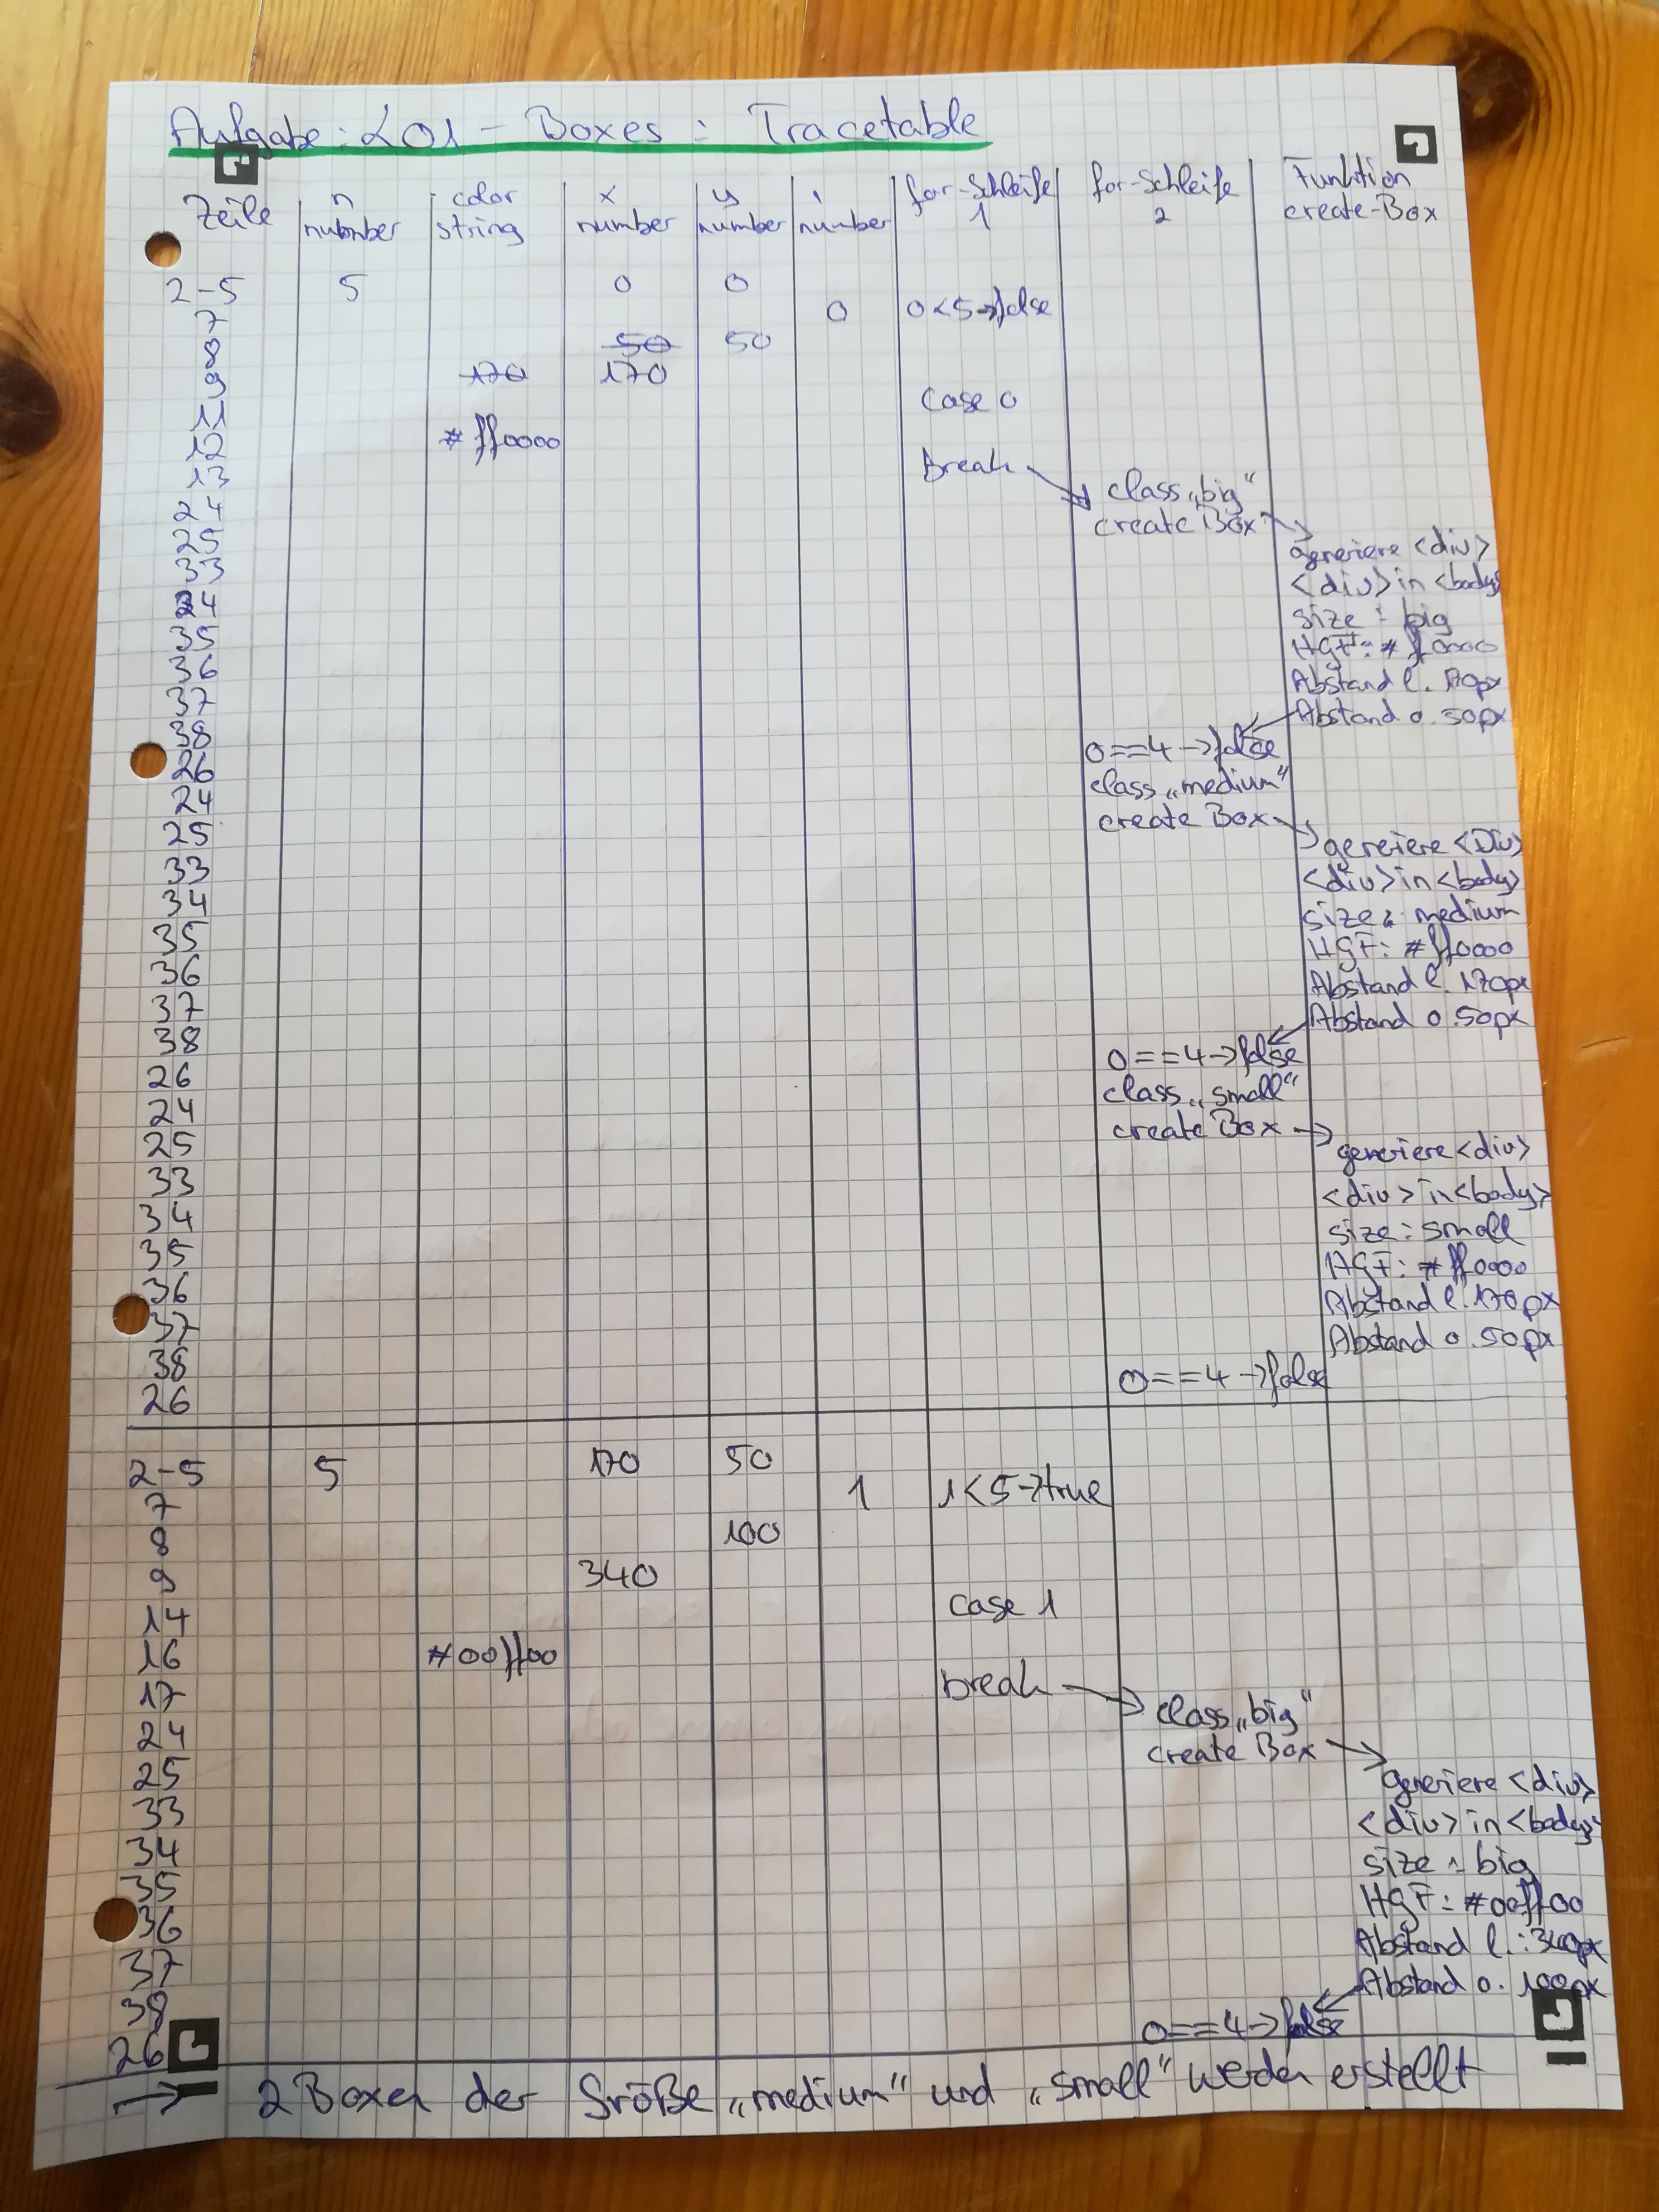 Aufgabe: L01 - Boxes : Tracetable
Zeile | n number | color string | x number | y number | i number | for-Schleife 1 | for-Schleife 2 | Funktion create-Box
2-5 5 0 0
7 0 0<5->false
8 50 50
9 170 170
11 case 0
12 #ff0000
13 Break
24 class „big"
25 create Box
33 generiere <div>
34 <div> in <body>
35 size: big
36 HGF: #ff0000
37 Abstand l. 170px
38 Abstand o. 50px
26 0==4->false
24 class „medium"
25 create Box
33 generiere <Div>
34 <div> in <body>
35 size: medium
36 HGF: #ff0000
37 Abstand l. 170px
38 Abstand o. 50px
26 0==4->false
24 class „small"
25 create Box
33 generiere <div>
34 <div> in <body>
35 size: small
36 HGF: #ff0000
37 Abstand l. 170px
38 Abstand o. 50px
26 0==4->false
2-5 5 170 50
7 1 1<5->true
8 100
9 340
14 case 1
16 #00ff00
17 break
24 class „big"
25 create Box
33 generiere <div>
34 <div> in <body>
35 size: big
36 HGF: #00ff00
37 Abstand l.: 340px
38 Abstand o. 100px
26 0==4->false
-> 2 Boxen der Größe „medium" und „small" werden erstellt